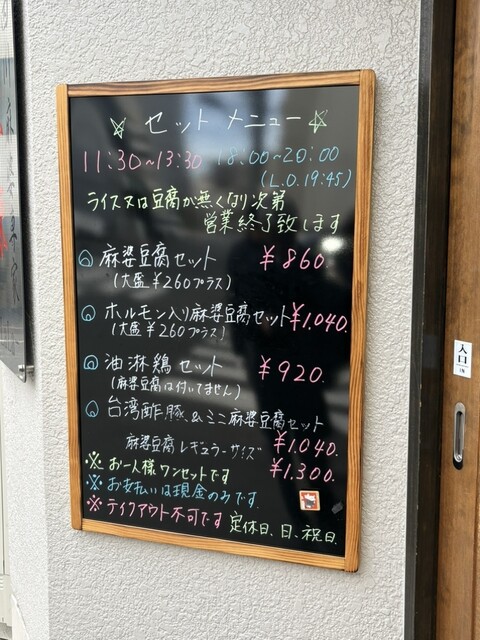 ☆ セット メニュー ☆
11:30~13:30 18:00~20:00
(L.O.19:45)
ライス又は豆腐が無くなり次第
営業終了致します
麻婆豆腐セット ¥860.
(大盛¥260プラス)
ホルモン入り麻婆豆腐セット ¥1,040.
(大盛¥260プラス)
油淋鶏セット ¥920.
(麻婆豆腐は付いてません)
台湾酢豚&ミニ麻婆豆腐セット
¥1,040.
麻婆豆腐レギュラーサイズ ¥1,300.
※お一人様ワンセットです
※お支払いは現金のみです.
※テイクアウト不可です 定休日、日、祝日.
入口